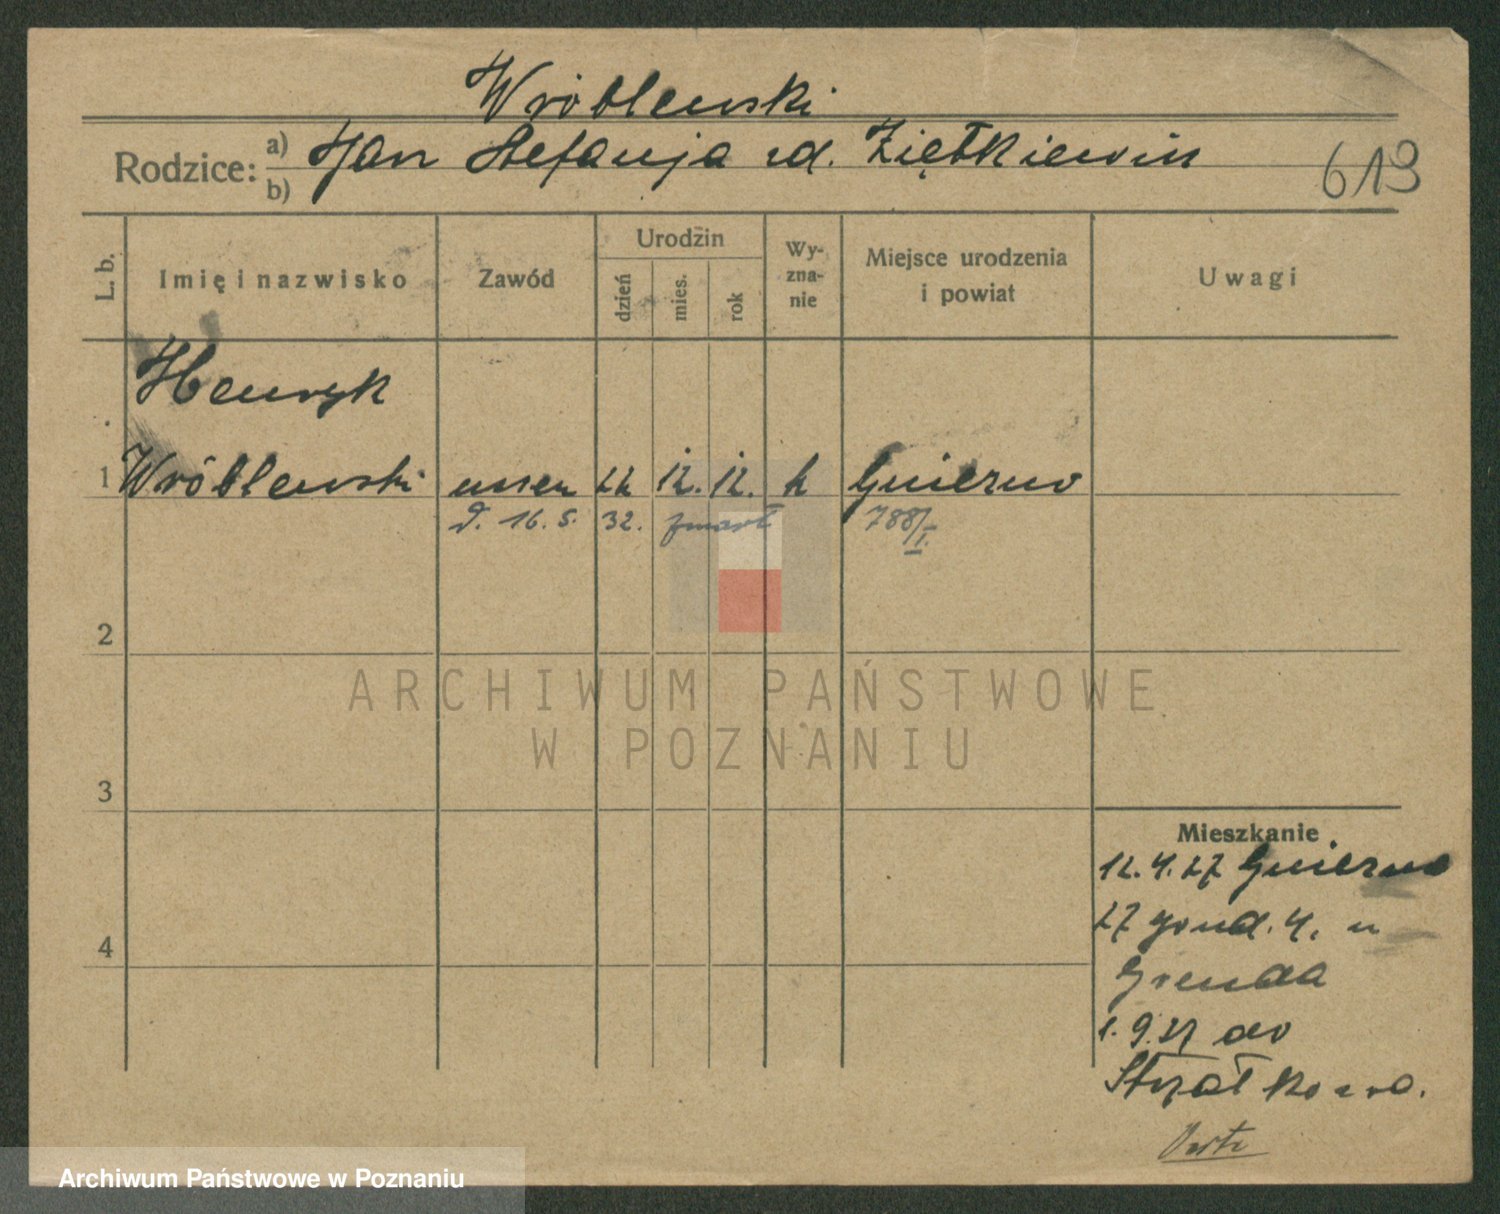 Wróblewski
Rodzice: a) b) Jan Stefanja zd. Ziętkiewicz
613
L. b. Imię i nazwisko Zawód Urodzin dzień mies. rok Wy-zna-nie Miejsce urodzenia i powiat Uwagi
Henryk
1 Wróblewski uczeń 22 12. 12. k Gniezno
d. 16. 5. 32. zmarł 788/I.
2
ARCHIWUM PAŃSTWOWE
W POZNANIU
3
Mieszkanie
12. 4. 27 Gniezno
27 4. u
Grenda
1. 9. do
Strzałkowa.
4
Archiwum Państwowe w Poznaniu